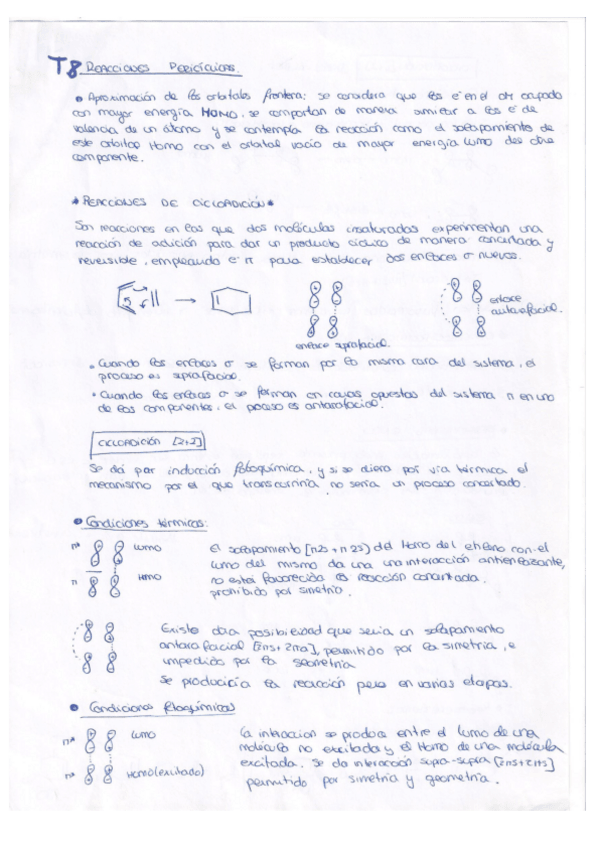 T8 REACCIONES PERICÍCLICAS
• Aproximación de los orbitales frontera: se considera que los e⁻ en el OM ocupado
con mayor energía HOMO, se comportan de manera similar a los e⁻ de
valencia de un átomo y se contempla la reacción como el solapamiento de
este orbital HOMO con el orbital vacío de mayor energía LUMO del otro
componente.
* REACCIONES DE CICLOADICIÓN *
Son reacciones en las que dos moléculas insaturadas experimentan una
reacción de adición para dar un producto cíclico de manera concertada y
reversible, empleando e⁻ π para establecer dos enlaces σ nuevos.
enlace
antarafacial.
enlace suprafacial.
• Cuando los enlaces σ se forman por la misma cara del sistema, el
proceso es suprafacial.
• Cuando los enlaces σ se forman en caras opuestas del sistema π en uno
de los componentes, el proceso es antarafacial.
CICLOADICIÓN [2+2]
Se da por inducción fotoquímica, y si se diera por vía térmica el
mecanismo por el que transcurriría no sería un proceso concertado.
• Condiciones térmicas:
π* LUMO
π HOMO
El solapamiento [π2s + π2s] del HOMO del etileno con el
LUMO del mismo da una una interacción antienlazante,
no está favorecida la reacción concertada.
prohibido por simetría.
Existe otra posibilidad que sería un solapamiento
antarafacial [2πs + 2πa], permitido por la simetría, e
impedido por la geometría
Se produciría la reacción pero en varias etapas.
• Condiciones fotoquímicas
π* LUMO
π* HOMO (excitado)
La interacción se produce entre el LUMO de una
molécula no excitada y el HOMO de una molécula
excitada. Se da interacción supra-supra [2πs + 2πs]
permitido por simetría y geometría.